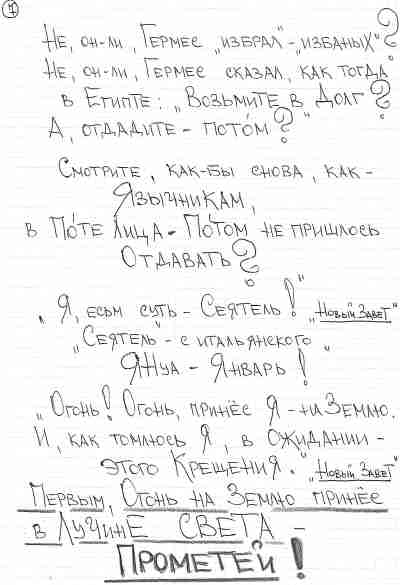 1
Не, он-ли, Гермес „избрал"-„избаных"?
Не, он-ли, Гермес сказал, как тогда
в Египте: „Возьмите в Долг?
А, отдадите - потóм?"
Смотрите, как-бы снова, как -
Язычникам,
в Пóте Лица - Пóтом не пришлось
Отдавать?
„Я, есьм суть - Сеятель!" „Новый Завет"
„Сеятель" - с итальянского „
ЯНуа - Январь!
„Огонь! Огонь, принёс Я - на Землю.
И, как томлюсь Я, в Ожидании -
этого Крещения." „Новый Завет"
Первым, Огонь на Землю принёс
в Лучине Света -
Прометей!